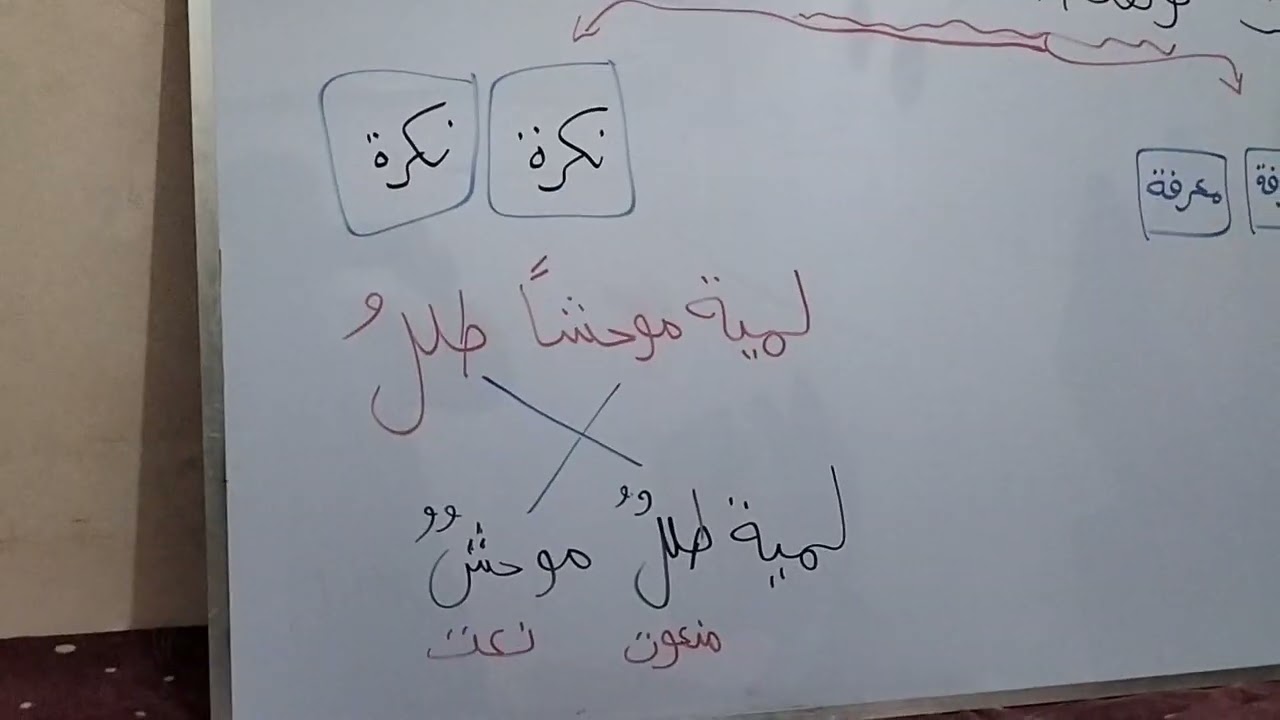 معرفة نكرة نكرة
لمية موحشاً طللُ
لمية طللٌ موحشٌ
منعوت نعت